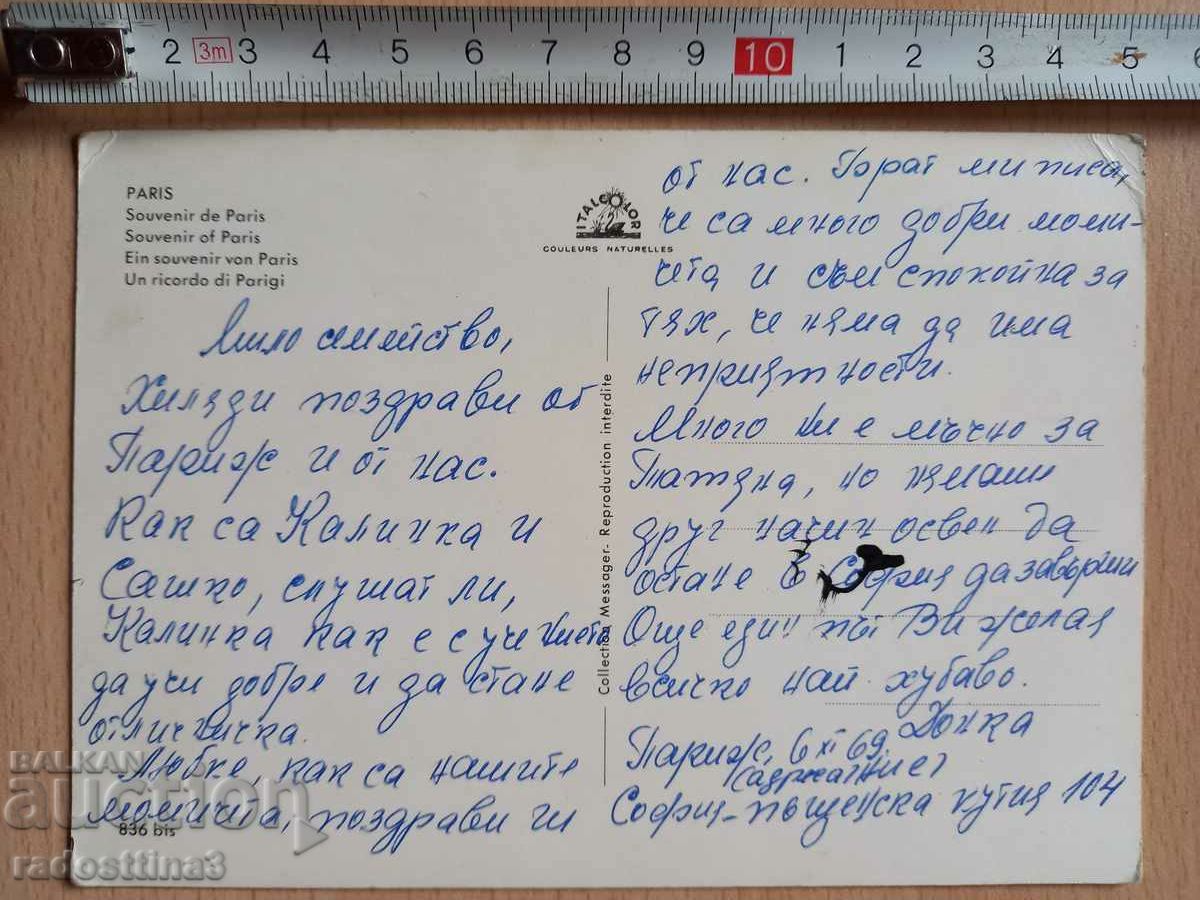 2 3m 3 4 5 6 7 8 9 10 1 2 3 4 5 6
PARIS
Souvenir de Paris
Souvenir of Paris
Ein souvenir von Paris
Un ricordo di Parigi
ITALCOLOR
COULEURS NATURELLES
Мило семейство,
Хиляди поздрави от
Париж и от нас.
Как са Калинка и
Сашко, слушат ли,
Калинка как е с учението
да учи добре и да стане
отличничка.
Любке, как са нашите
момичета, поздрави ги
836 bis
Collection Messager- Reproduction interdite
от нас. Борат ми писа,
че са много добри моми-
чета и съм спокойна за
тях, че няма да има
неприятности.
Много ни е мъчно за
Татяна, но нямаше
друг начин освен да
остане в София да завърши
Още един път Ви желая
всичко най хубаво.
Донка
Париж, 6 XI 69
София-пощенска кутия 104
BALKAN
auction
radosttina3